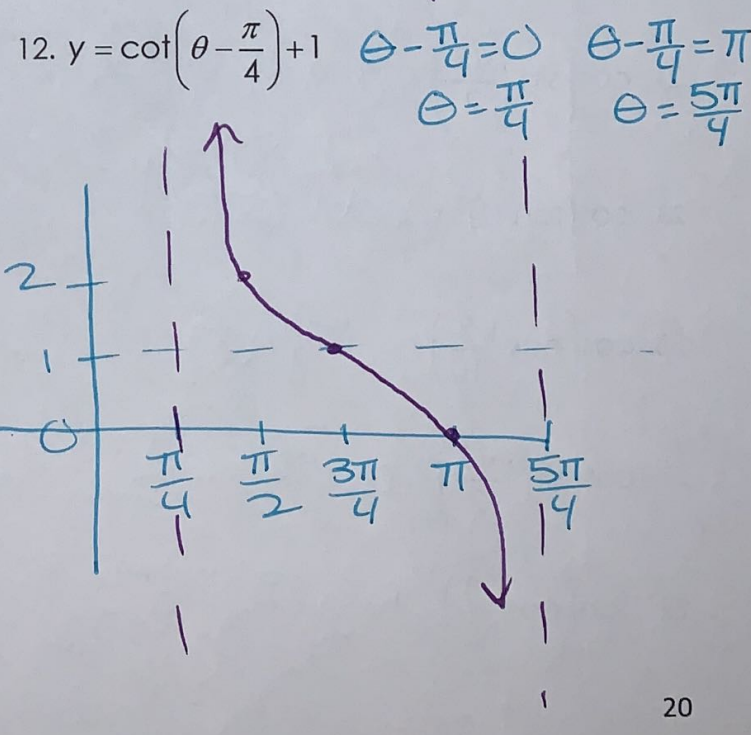 12. y = cot(θ − π/4) + 1 θ − π/4 = 0 θ − π/4 = π
θ = π/4 θ = 5π/4
2
1
0
π/4 π/2 3π/4 π 5π/4
20